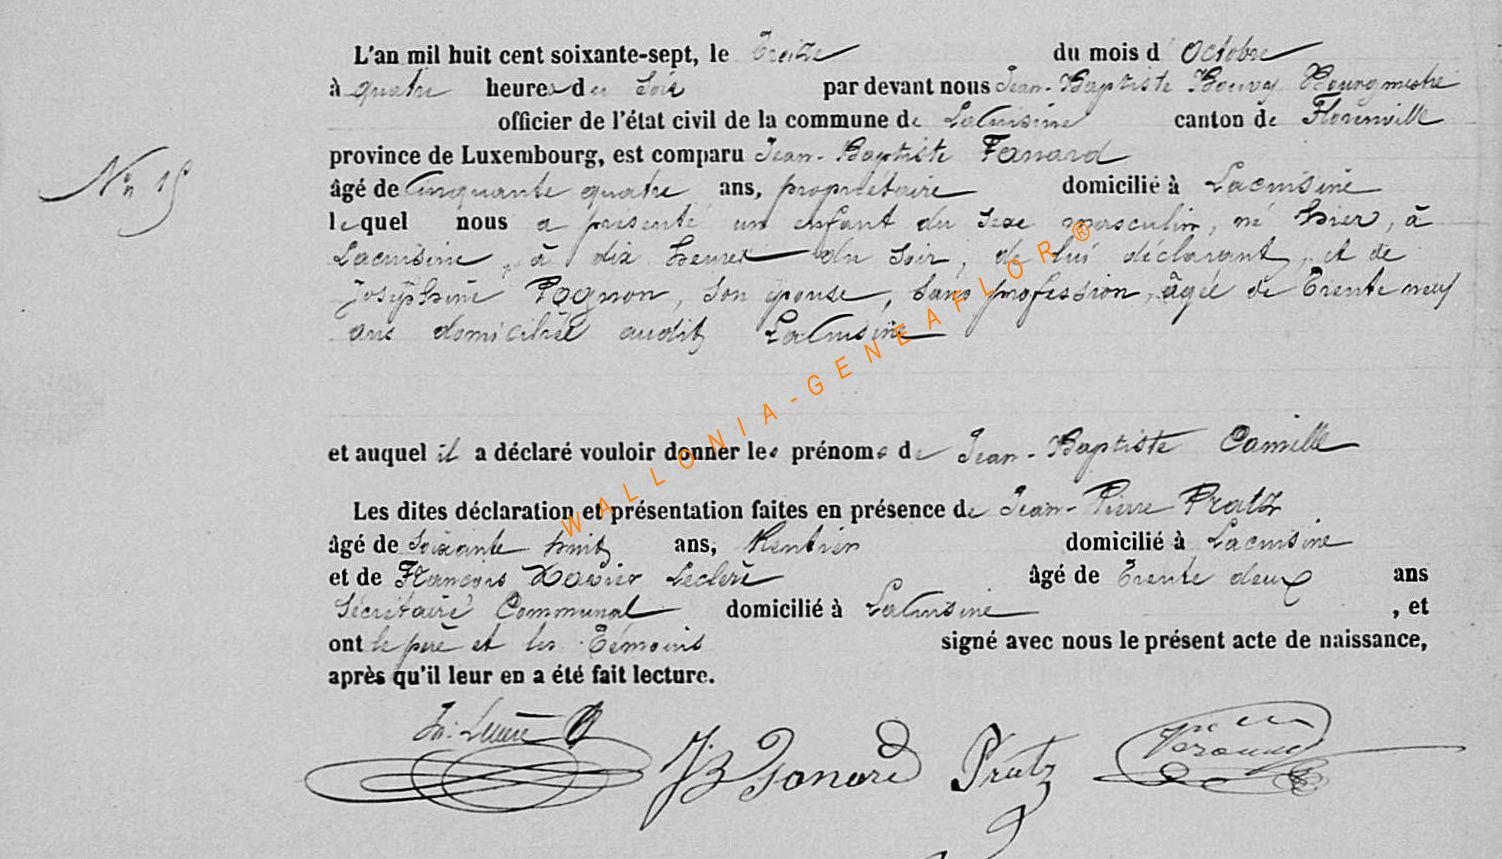 L'an mil huit cent soixante-sept, le Treize du mois d'Octobre
à quatre heures du Soir par devant nous Jean-Baptiste Bourgmestre
officier de l'état civil de la commune de LaCuisine canton de Florenville
province de Luxembourg, est comparu Jean-Baptiste Fanard
N° 15
âgé de Cinquante quatre ans, propriétaire domicilié à Lacuisine
lequel nous a présenté un enfant du sexe masculin, né hier, à
Lacuisine, à dix heures du soir, de lui déclarant, et de
Joséphine Pognon, son épouse, sans profession, âgée de Trente neuf
ans domiciliée audit LaCuisine
WALLONIA-GENEAFLOR®
et auquel il a déclaré vouloir donner les prénoms de Jean-Baptiste Camille
Les dites déclaration et présentation faites en présence de Jean-Pierre Pratz
âgé de soixante huit ans, Rentier domicilié à Lacuisine
et de François Xavier Leclère âgé de Trente deux ans
Sécrétaire Communal domicilié à LaCuisine , et
ont le père et les Témoins signé avec nous le présent acte de naissance,
après qu'il leur en a été fait lecture.
JB Fanard Pratz